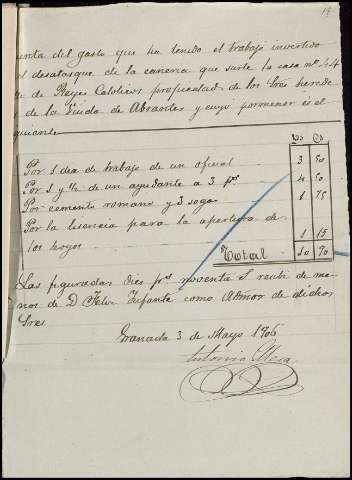 uenta del gasto que ha tenido el trabajo invertido
el desatasque de la cañeria que surte la casa nº 44
de Reyes Catolicos propiedad de los Sres herede
de la Viuda de Abraodes y cuyo pormenor es el
guiente
Ps Cs
Por 1 dea de trabajo de un oficial 3 50
Por 1 y ½ de un ayudante a 3 ps 4 50
Por cemento romano y 3 sogas 1 75
Por la licencia para la apertura de
los hoyos 1 15
Total 10 90
Las figuradas diez ps noventa cs recibi de ma-
nos de D. Felix Infante como Admor de dichos
Sres.
Granada 3 de Mayo 1906
Antonio Mesa